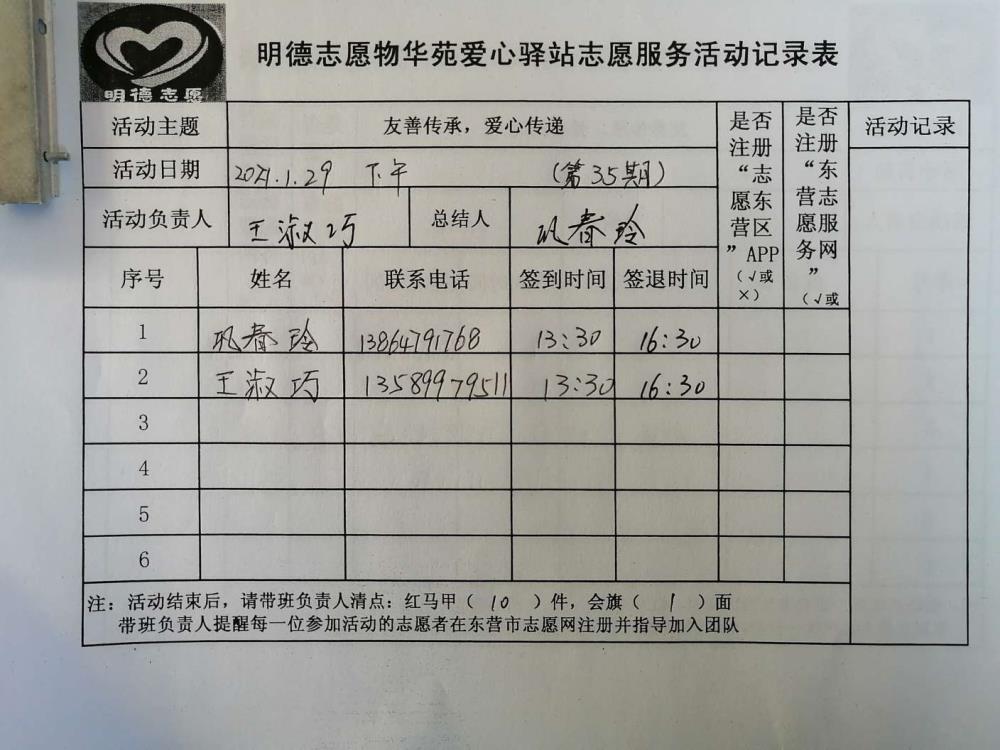 明德志愿
明德志愿物华苑爱心驿站志愿服务活动记录表
活动主题 友善传承，爱心传递
是否注册“志愿东营区”APP（√或×）
是否注册“东营志愿服务网”（√或
活动记录
活动日期 2021.1.29 下午 （第35期）
活动负责人 王淑巧 总结人 巩春玲
序号 姓名 联系电话 签到时间 签退时间
1 巩春玲 13864791768 13:30 16:30
2 王淑巧 13589979511 13:30 16:30
3
4
5
6
注：活动结束后，请带班负责人清点：红马甲（ 10 ）件，会旗（ 1 ）面
带班负责人提醒每一位参加活动的志愿者在东营市志愿网注册并指导加入团队